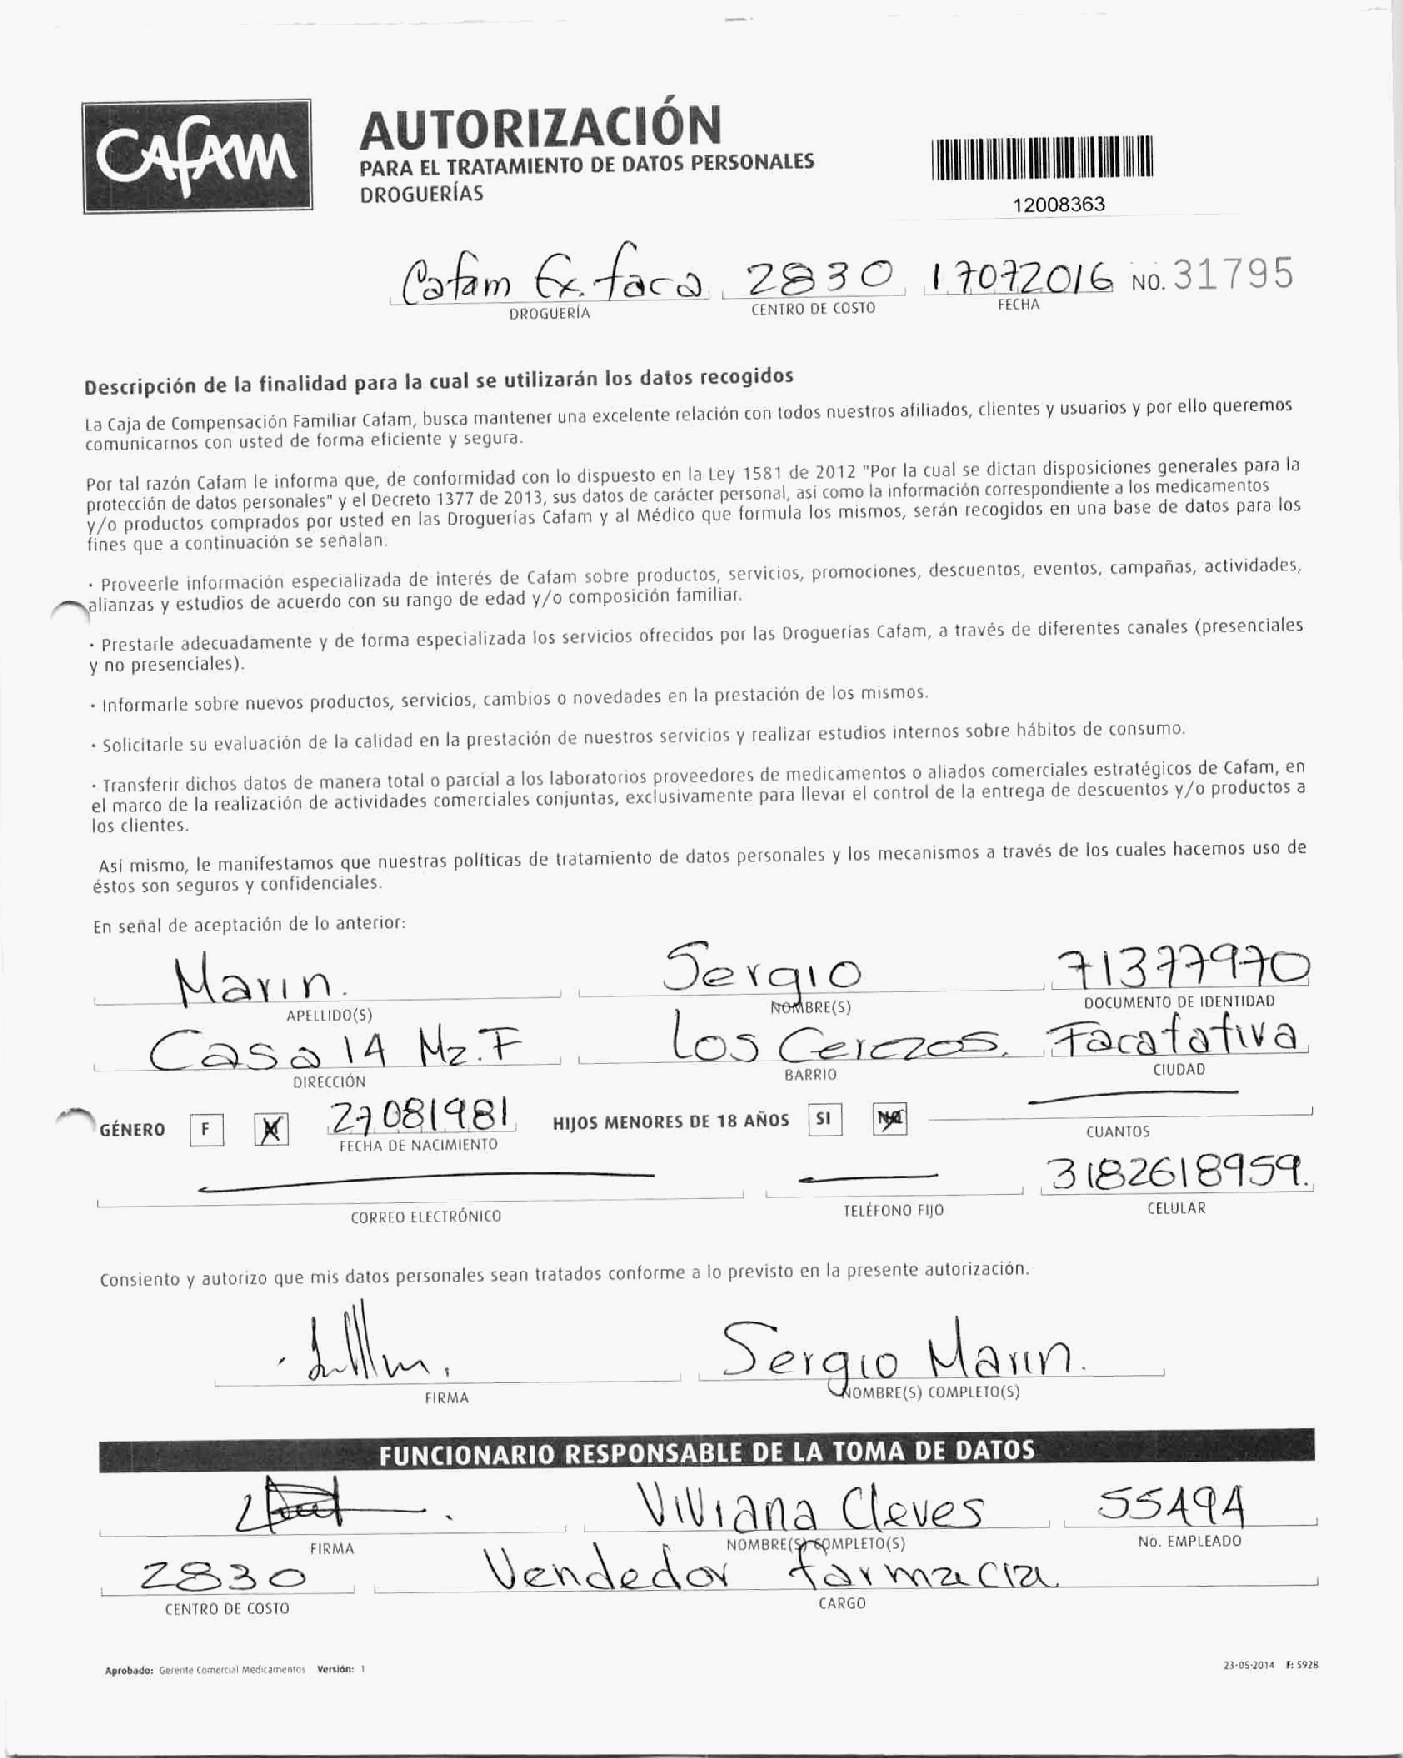 CAFAM
AUTORIZACIÓN
PARA EL TRATAMIENTO DE DATOS PERSONALES
DROGUERÍAS
12008363
Cafam Ex. faca 2830 17072016 NO. 31795
DROGUERÍA CENTRO DE COSTO FECHA
Descripción de la finalidad para la cual se utilizarán los datos recogidos
La Caja de Compensación Familiar Cafam, busca mantener una excelente relación con todos nuestros afiliados, clientes y usuarios y por ello queremos
comunicarnos con usted de forma eficiente y segura.
Por tal razón Cafam le informa que, de conformidad con lo dispuesto en la Ley 1581 de 2012 "Por la cual se dictan disposiciones generales para la
protección de datos personales" y el Decreto 1377 de 2013, sus datos de carácter personal, asi como la información correspondiente a los medicamentos
y/o productos comprados por usted en las Droguerías Cafam y al Médico que formula los mismos, serán recogidos en una base de datos para los
fines que a continuación se señalan.
· Proveerle información especializada de interés de Cafam sobre productos, servicios, promociones, descuentos, eventos, campañas, actividades,
alianzas y estudios de acuerdo con su rango de edad y/o composición familiar.
· Prestarle adecuadamente y de forma especializada los servicios ofrecidos por las Droguerías Cafam, a través de diferentes canales (presenciales
y no presenciales).
· Informarle sobre nuevos productos, servicios, cambios o novedades en la prestación de los mismos.
· Solicitarle su evaluación de la calidad en la prestación de nuestros servicios y realizar estudios internos sobre hábitos de consumo.
· Transferir dichos datos de manera total o parcial a los laboratorios proveedores de medicamentos o aliados comerciales estratégicos de Cafam, en
el marco de la realización de actividades comerciales conjuntas, exclusivamente para llevar el control de la entrega de descuentos y/o productos a
los clientes.
Así mismo, le manifestamos que nuestras políticas de tratamiento de datos personales y los mecanismos a través de los cuales hacemos uso de
éstos son seguros y confidenciales.
En señal de aceptación de lo anterior:
Marin. Sergio 71377970
APELLIDO(S) NOMBRE(S) DOCUMENTO DE IDENTIDAD
Casa 14 Mz. F Los Cerezos. Facatativa
DIRECCIÓN BARRIO CIUDAD
GÉNERO F X 27081981 HIJOS MENORES DE 18 AÑOS SI NO
FECHA DE NACIMIENTO CUANTOS
3182618959.
CORREO ELECTRÓNICO TELÉFONO FIJO CELULAR
Consiento y autorizo que mis datos personales sean tratados conforme a lo previsto en la presente autorización.
Sergio Marin.
FIRMA NOMBRE(S) COMPLETO(S)
FUNCIONARIO RESPONSABLE DE LA TOMA DE DATOS
Viviana Cleves 55494
FIRMA NOMBRE(S) COMPLETO(S) No. EMPLEADO
2830 Vendedor farmacia.
CENTRO DE COSTO CARGO
Aprobado: Gerente Comercial Medicamentos Versión: 1 23-05-2014 F: 5928